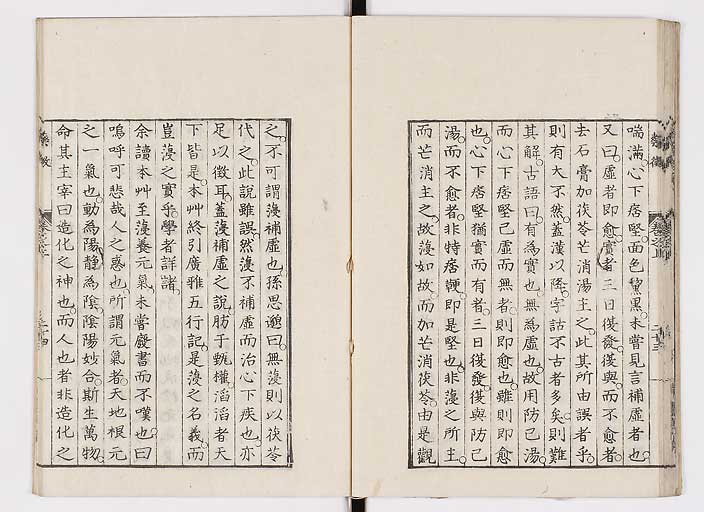 喘滿心下痞堅面色黧黑未嘗見言補虛者也
又曰虛者即愈實者三日復發復與而不愈者
去石膏加茯苓芒消湯主之此其所由誤者乎
則有大不然蓋漢以降字詁不古者多矣則難
其解古語曰有為實也無為虛也故用防己湯
而心下痞堅已虛而無者則即愈也雖則即愈
也心下痞堅猶實而有者三日復發復與防己
湯而不愈者非特痞鞕即是堅也非蓡之所主
而芒消主之故蓡如故而加芒消茯苓由是觀
之不可謂蓡補虛也孫思邈曰無蓡則以茯苓
代之此說雖誤然蓡不補虛而治心下疾也亦
足以徵耳蓋蓡補虛之說肪于甄權滔滔者天
下皆是本艸終引廣雅五行記是蓡之名義而
豈蓡之實乎學者詳諸
余讀本艸至蓡養元氣未嘗廢書而不嘆也曰
嗚呼可悲哉人之惑也所謂元氣者天地根元
之一氣也動為陽靜為陰陰陽妙合斯生萬物
命其主宰曰造化之神也而人也者非造化之